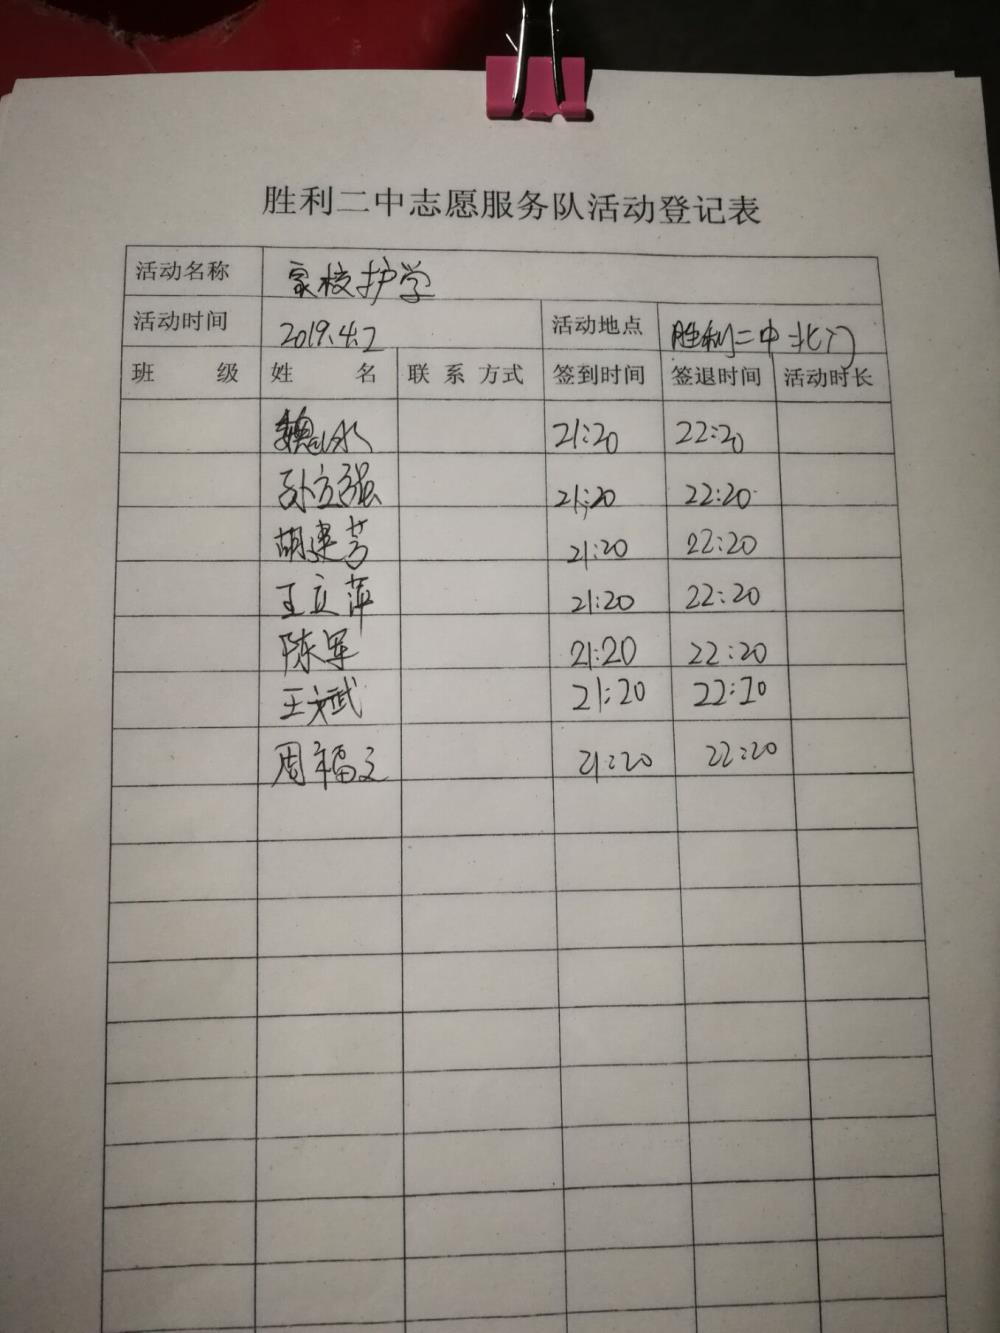 胜利二中志愿服务队活动登记表
活动名称 家校护学
活动时间 2019.4.2 活动地点 胜利二中北门
班 级 姓 名 联系方式 签到时间 签退时间 活动时长
魏 21:20 22:20
孙立强 21:20 22:20
胡建芳 21:20 22:20
王立萍 21:20 22:20
陈军 21:20 22:20
王斌武 21:20 22:20
周福文 21:20 22:20